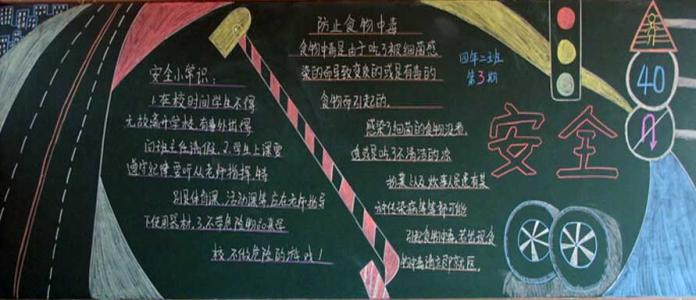 安全小常识:
1.在校时间学生不得
无故离开学校,有事外出得
向班主任请假。2.学生上课要
遵守纪律要听从老师指挥,特
别是体育课、活动课等,应在老师指导
下使用器材。3.不带危险物品来学
校,不做危险的游戏!
防止食物中毒
食物中毒是由于吃了被细菌感
染的而导致变质的或是有毒的
食物而引起的。
感染了细菌的食物
或是吃了不清洁的冰
以及炊事人员患有某
种传染病等等都可能
引起食物中毒。若出现食
物中毒请立即就医。
四年二班
第3期
安全
40